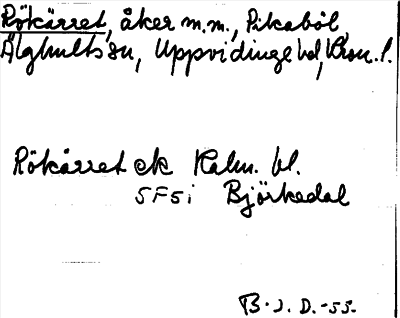 Rökärret, åker m.m., Pikaböl,
Älghults sn, Uppvidinge hd, Kron. l.
Rökärret ek Kalm. bl.
5F5i Björkedal
B. J. D. -55.